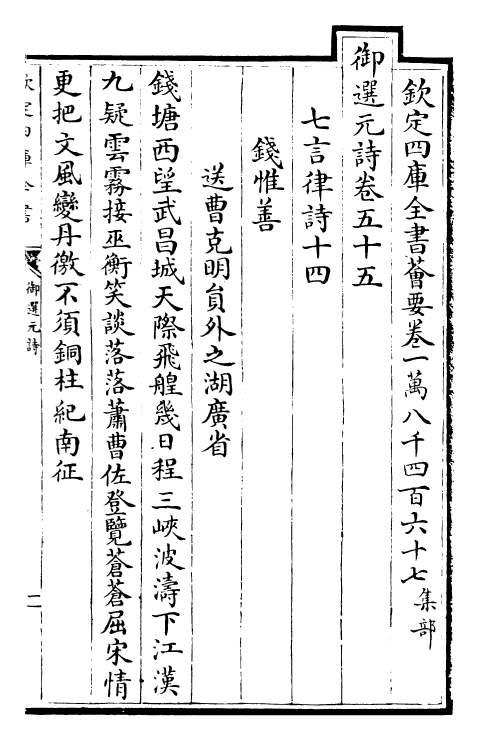 欽定四庫全書薈要卷一萬八千四百六十七集部
御選元詩卷五十五
七言律詩十四
錢惟善
送曹克明員外之湖廣省
錢塘西望武昌城天際飛艎幾日程三峽波濤下江漢
九疑雲霧接巫衡笑談落落蕭曹佐登覽蒼蒼屈宋情
更把文風變丹徼不須銅柱紀南征
欽定四庫全書
御選元詩